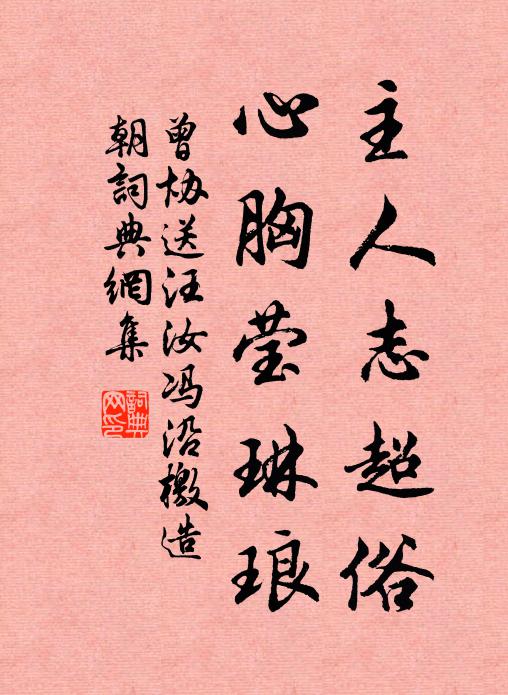 主人志超俗
心胸莹琳琅
曾協送汪汝冯沿檄造
朝詞典網集
詞典网印